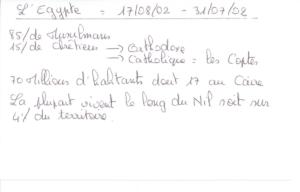 L'Egypte = 17/08/02 - 31/07/02
85% de Musulmans
15% de Chrétiens → Orthodoxe
→ Catholique = les Coptes
70 Millions d'habitants dont 17 au Caire
La plupart vivent le long du Nil soit sur
4% du territoire.